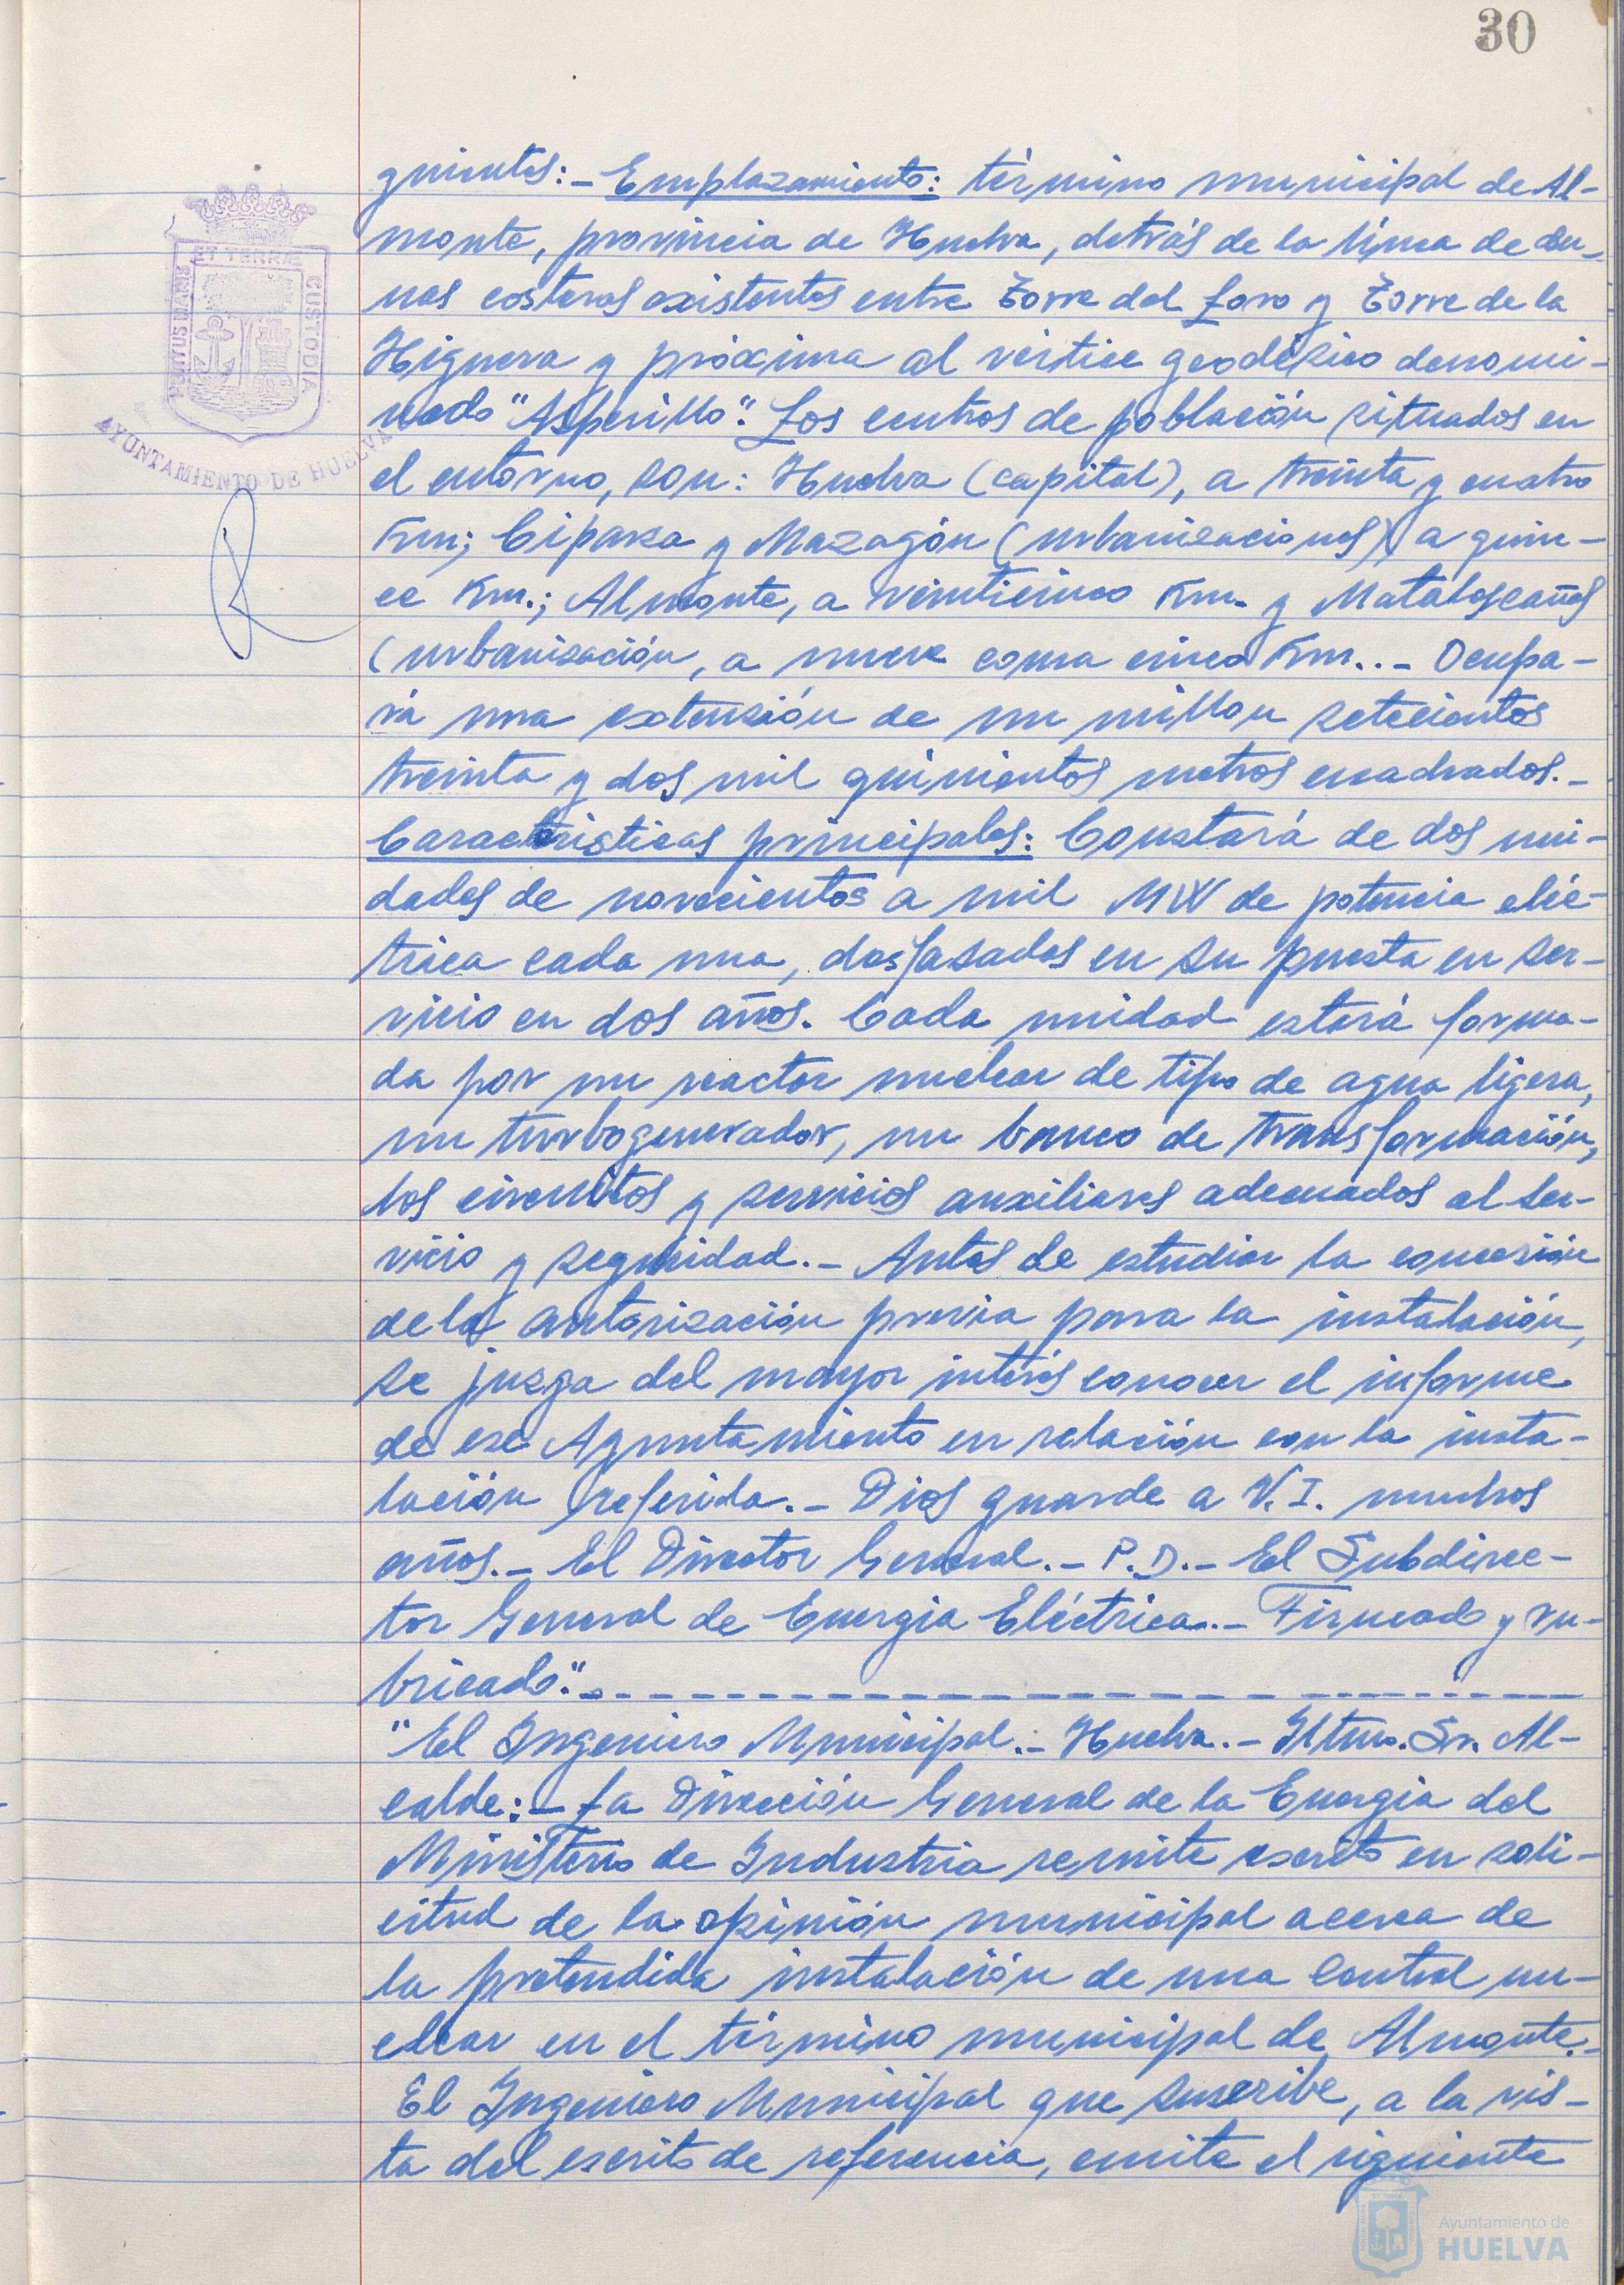 30
guientes:- Emplazamiento: término municipal de Al-
monte, provincia de Huelva, detrás de la línea de du-
nas costeras existentes entre Torre del Loro y Torre de la
Higuera y próxima al vértice geodésico denomi-
nado "Asperillo". Los centros de población situados en
el entorno, son: Huelva (capital), a treinta y cuatro
Km; Ciparsa y Mazagón (urbanizaciones), a quin-
ce Km.; Almonte, a veinticinco Km. y Matalascañas
(urbanización, a nueve coma cinco Km..- Ocupa-
rá una extensión de un millon setecientos
treinta y dos mil quinientos metros cuadrados.-
Caracteristicas principales: Constará de dos uni-
dades de novecientos a mil MW de potencia eléc-
trica cada una, desfasados en su puesta en ser-
vicio en dos años. Cada unidad estará forma-
da por un reactor nuclear de tipo de agua ligera,
un turbogenerador, un banco de transformación,
los circuitos y servicios auxiliares adecuados al ser-
vicio y seguridad.- Antes de estudiar la concesión
de la autorización previa para la instalación,
se juzga del mayor interés conocer el informe
de ese Ayuntamiento en relación con la insta-
lación referida.- Dios guarde a V.I. muchos
años.- El Director General.- P.D.- El Subdirec-
tor General de Energia Eléctrica..- Firmado y ru-
bricado".- - - - - - - - - - - - - - - - - - - -
"El Ingeniero Municipal.- Huelva.- Iltmo. Sr. Al-
calde:- La Dirección General de la Energia del
Ministerio de Industria remite escrito en soli-
citud de la opinión municipal acerca de
la pretendida instalación de una Central nu-
clear en el término municipal de Almonte.-
El Ingeniero Municipal que suscribe, a la vis-
ta del escrito de referencia, emite el siguiente
PORTUS MARIS
ET TERRÆ
CUSTODIA
AYUNTAMIENTO DE HUELVA
Ayuntamiento de
HUELVA